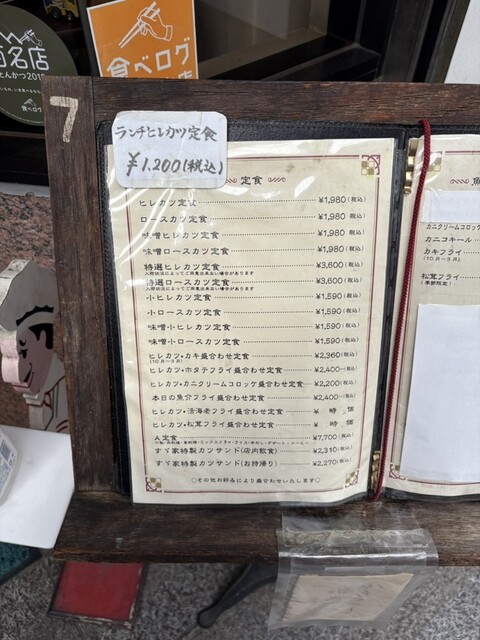 百名店
とんかつ 201
食べログ
食べログ
店
7
ランチヒレカツ定食
¥1,200(税込)
定食
ヒレカツ定食 ¥1,980(税込)
ロースカツ定食 ¥1,980(税込)
味噌ヒレカツ定食 ¥1,980(税込)
味噌ロースカツ定食 ¥1,980(税込)
特選ヒレカツ定食 ¥3,600(税込)
入荷状況によってご用意出来ない場合があります
特選ロースカツ定食 ¥3,600(税込)
入荷状況によってご用意出来ない場合があります
小ヒレカツ定食 ¥1,590(税込)
小ロースカツ定食 ¥1,590(税込)
味噌小ヒレカツ定食 ¥1,590(税込)
味噌小ロースカツ定食 ¥1,590(税込)
ヒレカツ・カキ盛合わせ定食 ¥2,360(税込)
(10月〜3月)
ヒレカツ・ホタテフライ盛合わせ定食 ¥2,400(税込)
ヒレカツ・カニクリームコロッケ盛合わせ定食 ¥2,200(税込)
本日の魚介フライ盛合わせ定食 ¥2,400〜(税込)
ヒレカツ・活海老フライ盛合わせ定食 ¥ 時 価
ヒレカツ・松茸フライ盛合わせ定食 ¥ 時 価
人定食 ¥7,700(税込)
すゞ家特製カツサンド(店内飲食) ¥2,310(税込)
すゞ家特製カツサンド(お持帰り) ¥2,270(税込)
○その他お好みにより盛合わせいたします○
魚
カニクリームコロッケ
カニコキール
カキフライ
(10月〜3月)
松茸フライ
(季節限定)